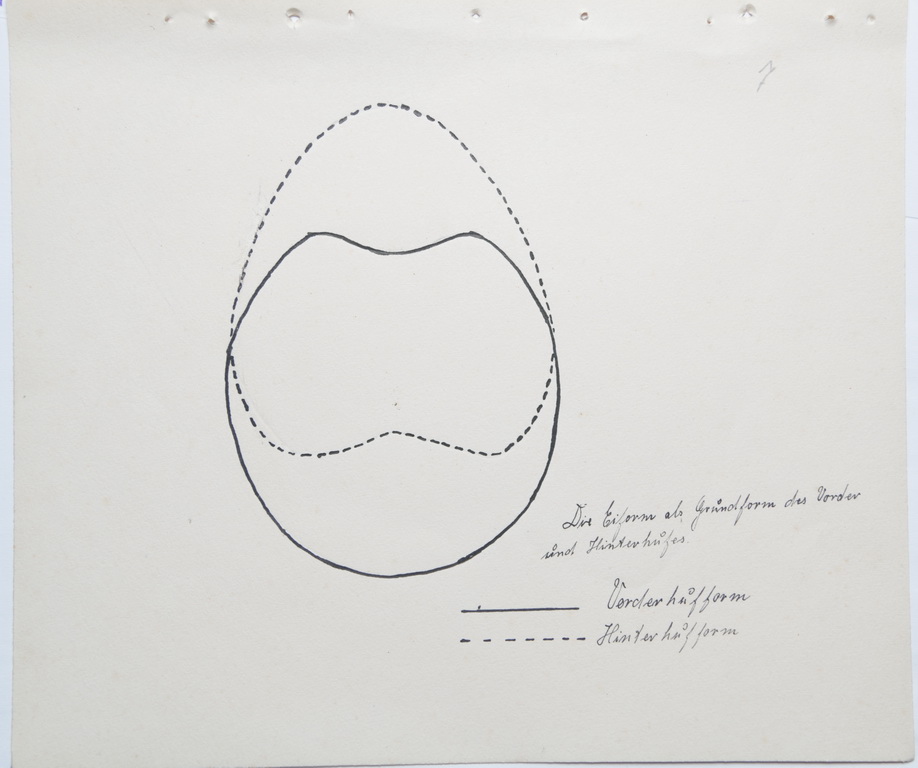 7
Die Eiform als Grundform des Vorder
und Hinterhufes.
Vorderhufform
Hinterhufform